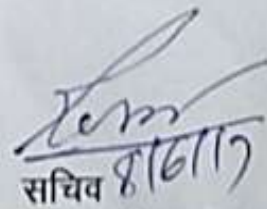 सचिव 8/6/17